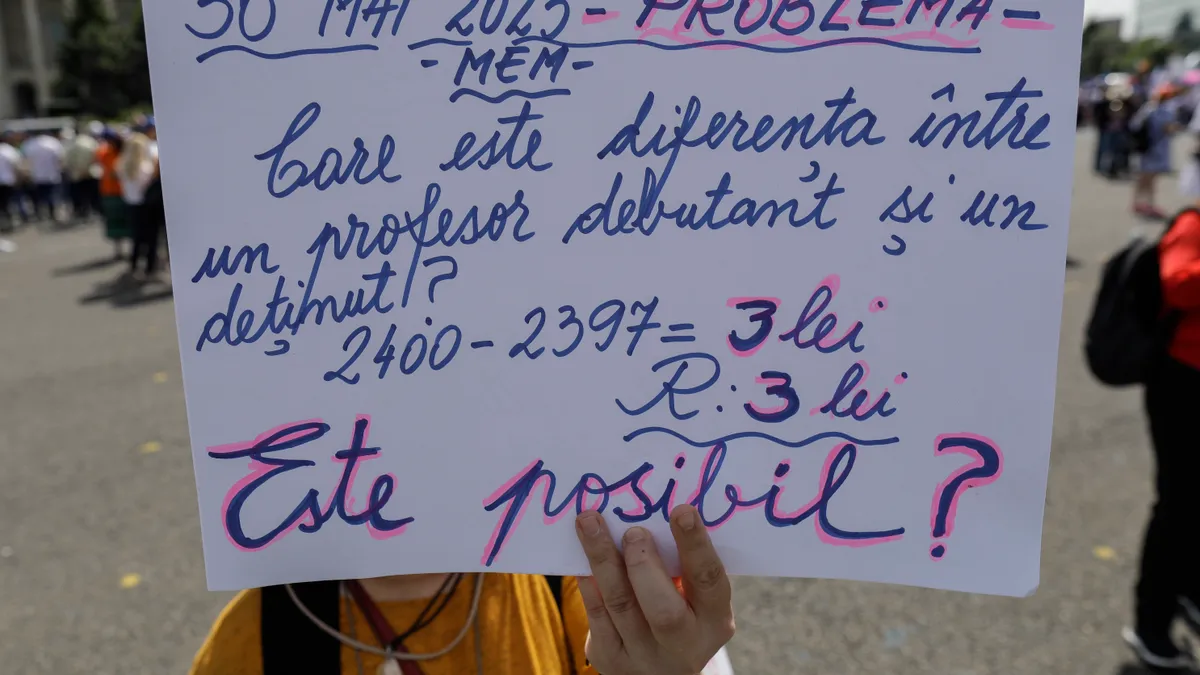 30 MAI 2023 - PROBLEMA -
- MEM -
Care este diferența între
un profesor debutant și un
deținut?
2400 - 2397 = 3 lei
R: 3 lei
Este posibil?